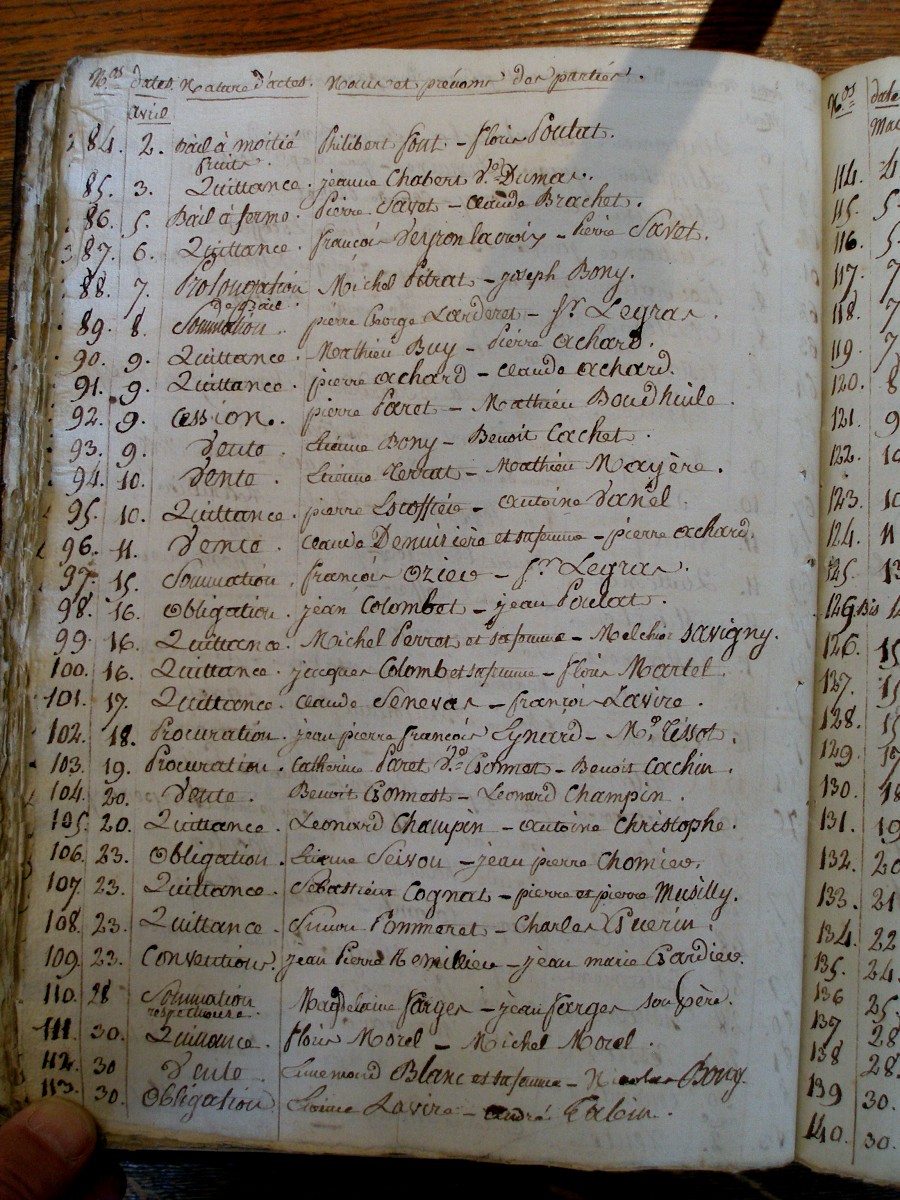 Nos dates. Nature d'actes. Noms et prénoms des parties.
avril
84. 2. Bail à moitié Philibert font - floris Poulat.
fruits.
85. 3. Quittance. jeanne Chabert Ve Dumas.
86. 5. Bail à ferme. Pierre Savot - Claude Brachet.
87. 6. Quittance. françois Veyron lacroix - Pierre Savot.
88. 7. Prolongation Michel Pitrat - joseph Bony.
de Bail.
89. 8. Sommation. pierre George Larderet - Sr. Legras.
90. 9. Quittance. Mathieu Buy - Pierre achard.
91. 9. Quittance. pierre achard - claude achard.
92. 9. Cession. pierre Paret - Mathieu Boudhuile.
93. 9. Vente. Etienne Bony - Benoit Cachet.
94. 10. Vente. Etienne - Mathieu Mayère.
95. 10. Quittance. pierre Escoffiér - antoine Vanel.
96. 11. Vente. Claude et sa femme - pierre achard.
97. 15. Sommation. françois Ozier - Sr. Legras.
98. 16. Obligation. jean Colombet - jean Poulat.
99. 16. Quittance. Michel Perrot et sa femme - Melchior Savigny.
100. 16. Quittance. jacques Colomb et sa femme - floris Martel.
101. 17. Quittance. Claude Senevas - françois Lavire.
102. 18. Procuration. jean pierre françois - Me. Tissot.
103. 19. Procuration. Catherine Paret Ve Gonnet - Benoit Cachin.
104. 20. Vente. Benoit - Leonard Champin.
105. 20. Quittance. Leonard Champin - antoine Christophe.
106. 23. Obligation. Etienne Seivou - jean pierre Chomier.
107. 23. Quittance. Sébastien Cognat - pierre et pierre Musilly.
108. 23. Quittance. Simon Pommerat - Charles Guerin.
109. 23. Conventions. jean Pierre Remillieu - jean marie Gardier.
110. 28 Sommation Magdelaine farges - jean farges son père.
respectueuse.
111. 30. Quittance. floris Morel - Michel Morel.
112. 30 Vente. Blanc et sa femme - Nicolas Bony.
113. 30. Obligation Etienne Lavire - andré Tabin.
Nos date
Mai
114. 4
115. 5
116. 5
117. 7
118. 7
119. 7
120. 8
121. 9
122. 10
123. 10
124. 11
125. 13
126 Bis 1
126. 15
127. 15
128. 15
129. 17
130. 18
131. 19
132. 20
133. 21
134. 22
135. 24.
136 25.
137 28
138 28.
139 30.
140. 30.